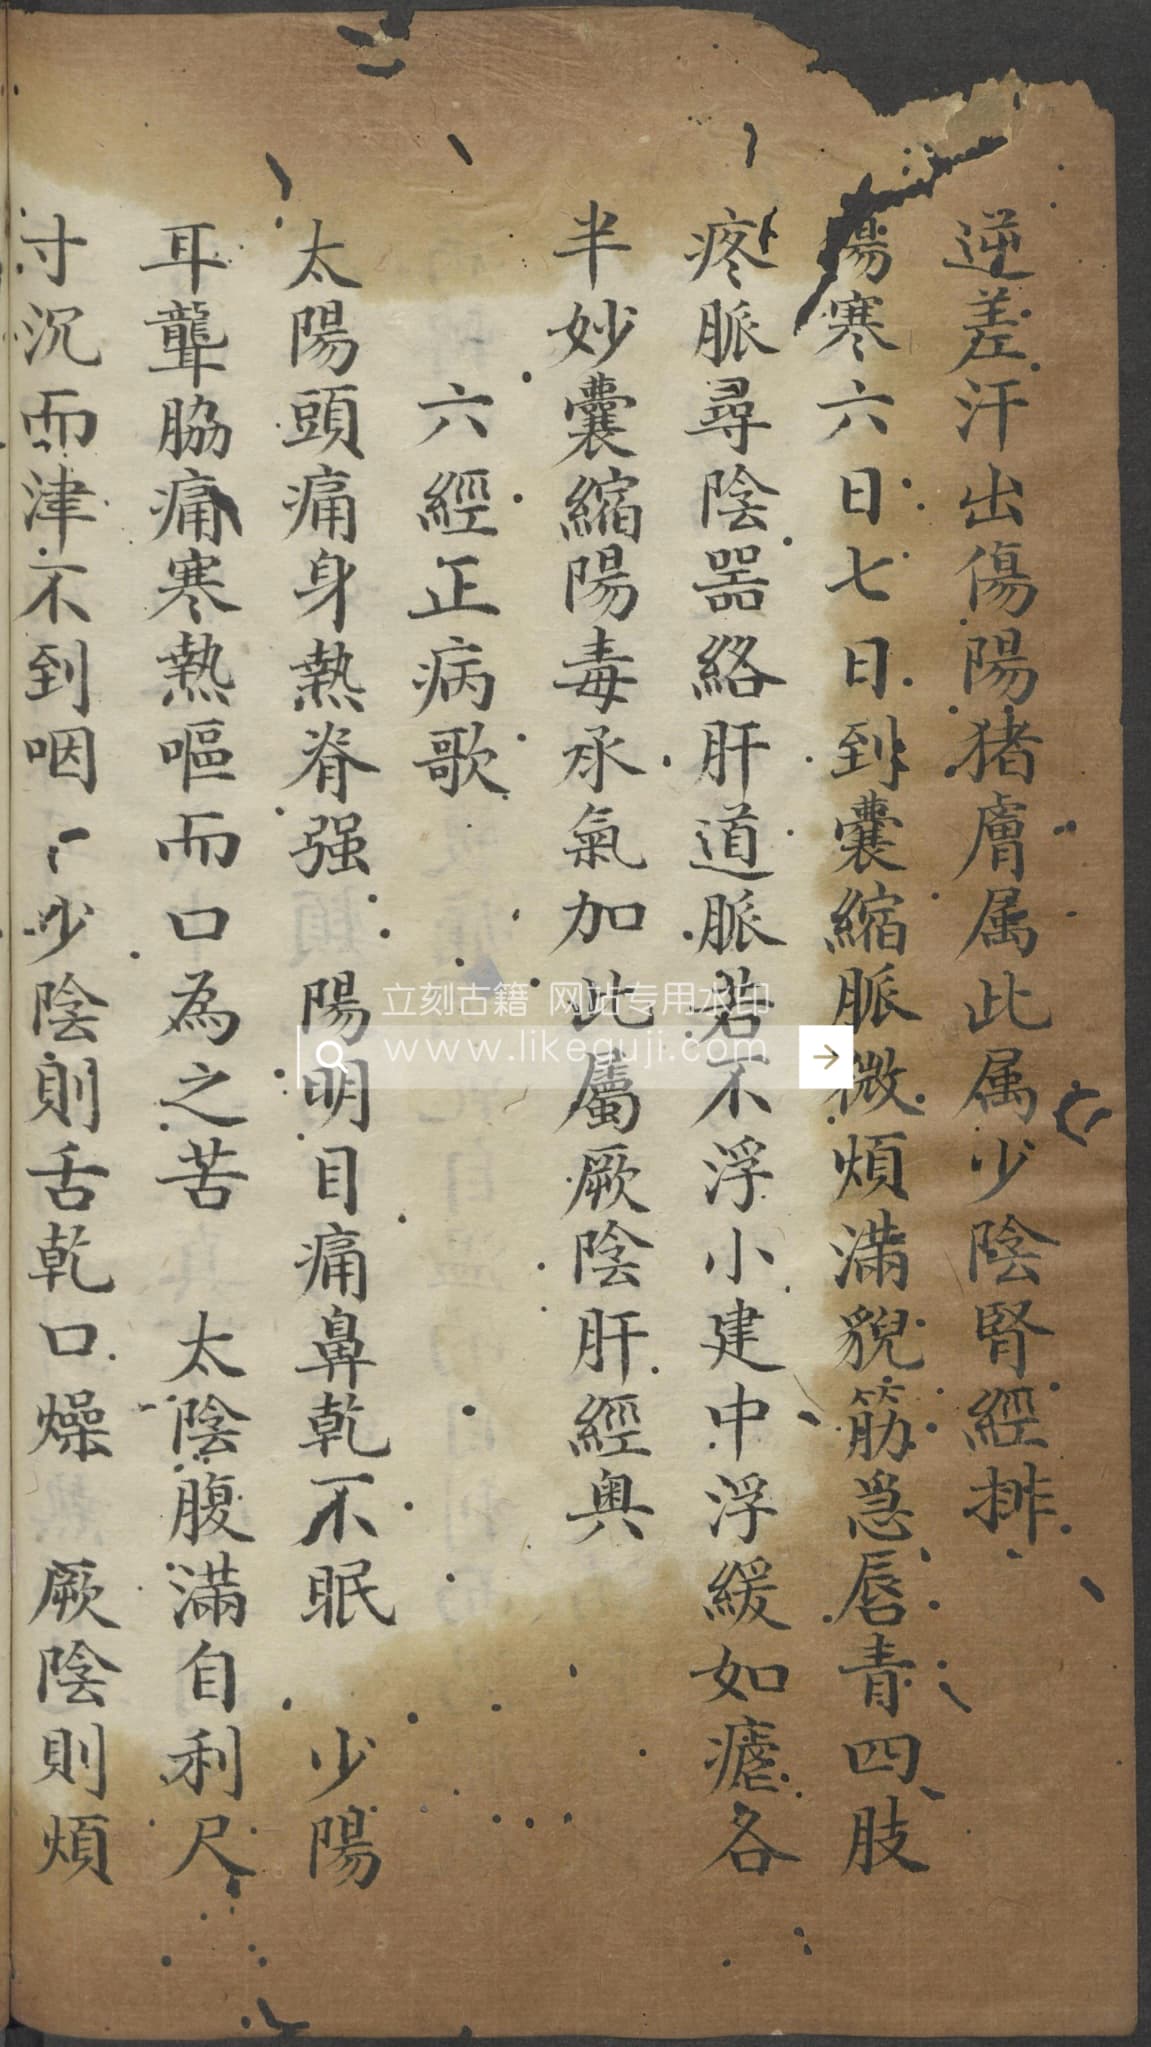 逆差汗出傷陽猪膚属此属少陰腎經排
傷寒六日七日到囊縮脈微煩滿貌筋急唇青四肢
疼脈尋陰器絡肝道脈若不浮小建中浮緩如瘧各
半妙囊縮陽毒承氣加此屬厥陰肝經奥
六經正病歌
太陽頭痛身熱脊强 陽明目痛鼻乾不眠 少陽
耳聾脇痛寒熱嘔而口為之苦 太陰腹滿自利尺
寸沉而津不到咽 少陰則舌乾口燥 厥陰則煩
立刻古籍 网站专用水印
www.likeguji.com